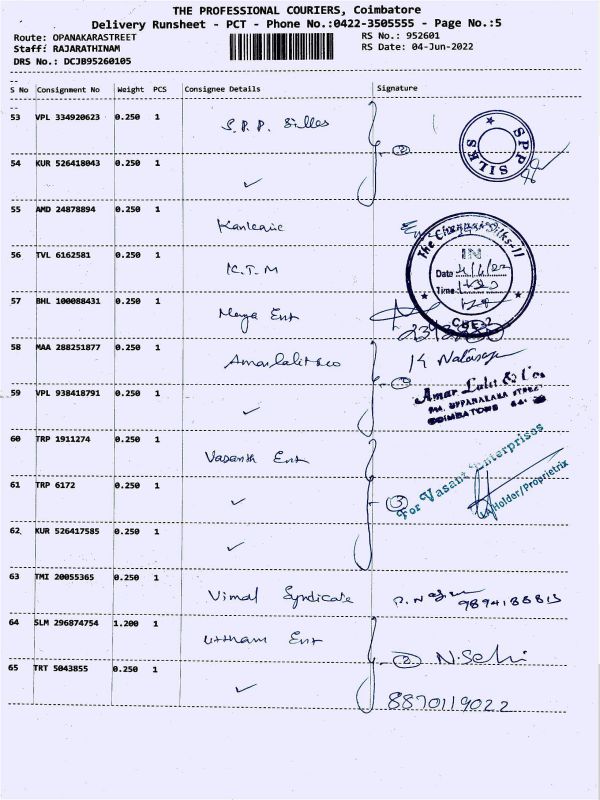 THE PROFESSIONAL COURIERS, Coimbatore
Delivery Runsheet - PCT - Phone No.:0422-3505555 - Page No.:5
Route: OPANAKARASTREET
RS No.: 952601
Staff: RAJARATHINAM
RS Date: 04-Jun-2022
DRS No.: DCJB95260105
S No Consignment No Weight PCS Consignee Details Signature
53 VPL 334920623 0.250 1 S.P.P. Silks
SPP SILKS
54 KUR 526418043 0.250 1 ✓
55 AMD 24878894 0.250 1
The Chennai Silks-II
56 TVL 6162581 0.250 1 K.T.M
IN
Date
Time
57 BHL 100088431 0.250 1 Maya Ent
CBE-32
58 MAA 288251877 0.250 1 Amarlalit &co K Natarajan
Amar Lalit & Co.
59 VPL 938418791 0.250 1 ✓
COIMBATORE
60 TRP 1911274 0.250 1 Vasanth Ent
For Vasant Enterprises
61 TRP 6172 0.250 1 ✓ 3
Holder/Proprietrix
62 KUR 526417585 0.250 1 ✓
63 TMI 20055365 0.250 1 Vimal Syndicate
64 SLM 296874754 1.200 1 Uttham Ent
2 N.Selvi
65 TRT 5043855 0.250 1 ✓
8870119022